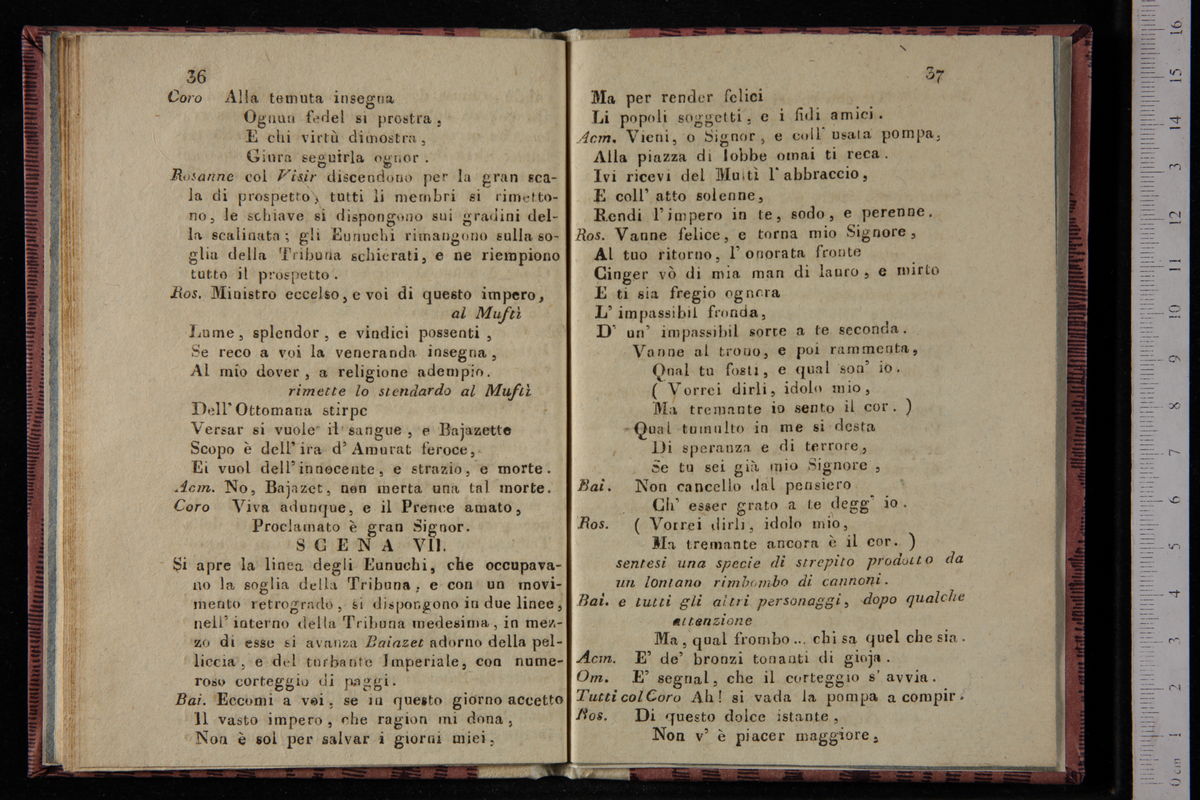 36
Coro Alla temuta insegna
Ognun fedel si prostra,
E chi virtù dimostra,
Giura seguirla ognor.
Rosanne col Visir discendono per la gran sca-
la di prospetto, tutti li membri si rimetto-
no, le schiave si dispongono sui gradini del-
la scalinata; gli Eunuchi rimangono sulla so-
glia della Tribuna schierati, e ne riempiono
tutto il prospetto.
Ros. Ministro eccelso, e voi di questo impero,
al Muftì
Lume, splendor, e vindici possenti,
Se reco a voi la veneranda insegna,
Al mio dover, a religione adempio.
rimette lo stendardo al Muftì
Dell' Ottomana stirpe
Versar si vuole il sangue, e Bajazette
Scopo è dell' ira d' Amurat feroce,
Ei vuol dell' innocente, e strazio, e morte.
Acm. No, Bajazet, non merta una tal morte.
Coro Viva adunque, e il Prence amato,
Proclamato è gran Signor.
SCENA VII.
Si apre la linea degli Eunuchi, che occupava-
no la soglia della Tribuna, e con un movi-
mento retrogrado, si dispongono in due linee,
nell' interno della Tribuna medesima, in mez-
zo di esse si avanza Baiazet adorno della pel-
liccia, e del turbante Imperiale, con nume-
roso corteggio di paggi.
Bai. Eccomi a voi, se in questo giorno accetto
Il vasto impero, che ragion mi dona,
Non è sol per salvar i giorni miei,
37
Ma per render felici
Li popoli soggetti, e i fidi amici.
Acm. Vieni, o Signor, e coll' usata pompa,
Alla piazza di Iobbe omai ti reca.
Ivi ricevi del Muftì l' abbraccio,
E coll' atto solenne,
Rendi l' impero in te, sodo, e perenne.
Ros. Vanne felice, e torna mio Signore,
Al tuo ritorno, l' onorata fronte
Cinger vò di mia man di lauro, e mirto
E ti sia fregio ognora
L' impassibil fronda,
D' un' impassibil sorte a te seconda.
Vanne al trono, e poi rammenta,
Qual tu fosti, e qual son' io.
( Vorrei dirli, idolo mio,
Ma tremante io sento il cor. )
Qual tumulto in me si desta
Di speranza e di terrore,
Se tu sei già mio Signore,
Bai. Non cancello dal pensiero
Ch' esser grato a te degg' io.
Ros. ( Vorrei dirli, idolo mio,
Ma tremante ancora è il cor. )
sentesi una specie di strepito prodotto da
un lontano rimbombo di cannoni.
Bai. e tutti gli altri personaggi, dopo qualche
attenzione
Ma, qual frombo... chi sa quel che sia.
Acm. E' de' bronzi tonanti di gioja.
Om. E' segnal, che il corteggio s' avvia.
Tutti col Coro Ah! si vada la pompa a compir.
Ros. Di questo dolce istante,
Non v' è piacer maggiore,
0 cm 1 2 3 4 5 6 7 8 9 10 11 12 13 14 15 16